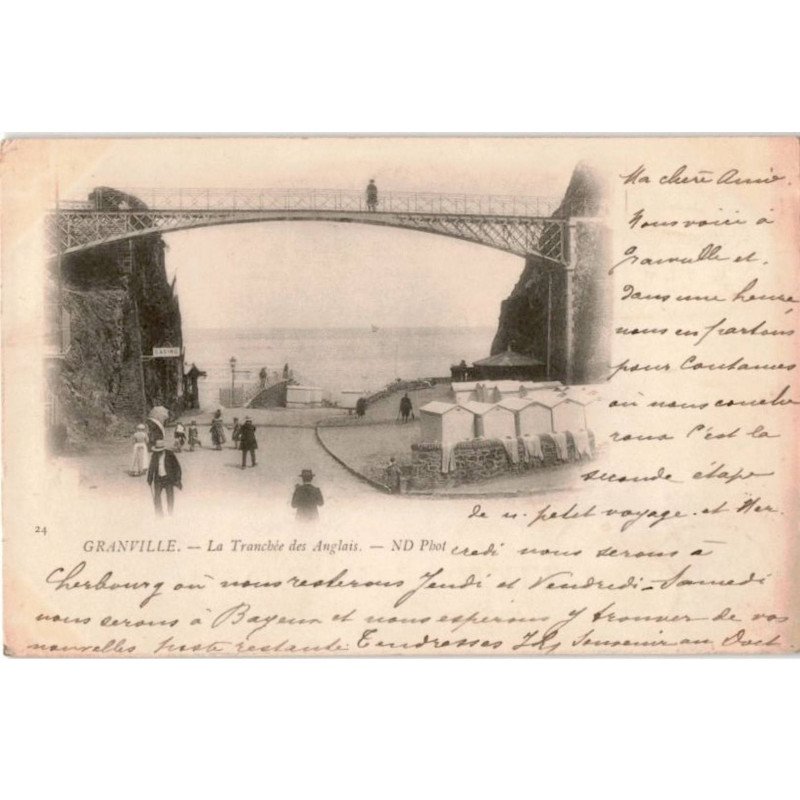 CASINO
Ma chère Amie.
Nous voici à
Granville et.
dans une heure
nous en partons
pour Coutances
où nous couche
rons C'est la
seconde étape
de n. petit voyage. et Mer.
24
GRANVILLE. — La Tranchée des Anglais. — ND Phot
credi nous serons à
Cherbourg où nous resterons Jeudi et Vendredi - Samedi
nous serons à Bayeux et nous espérons y trouver de vos
nouvelles poste restante. Tendresses Souvenir au Doct